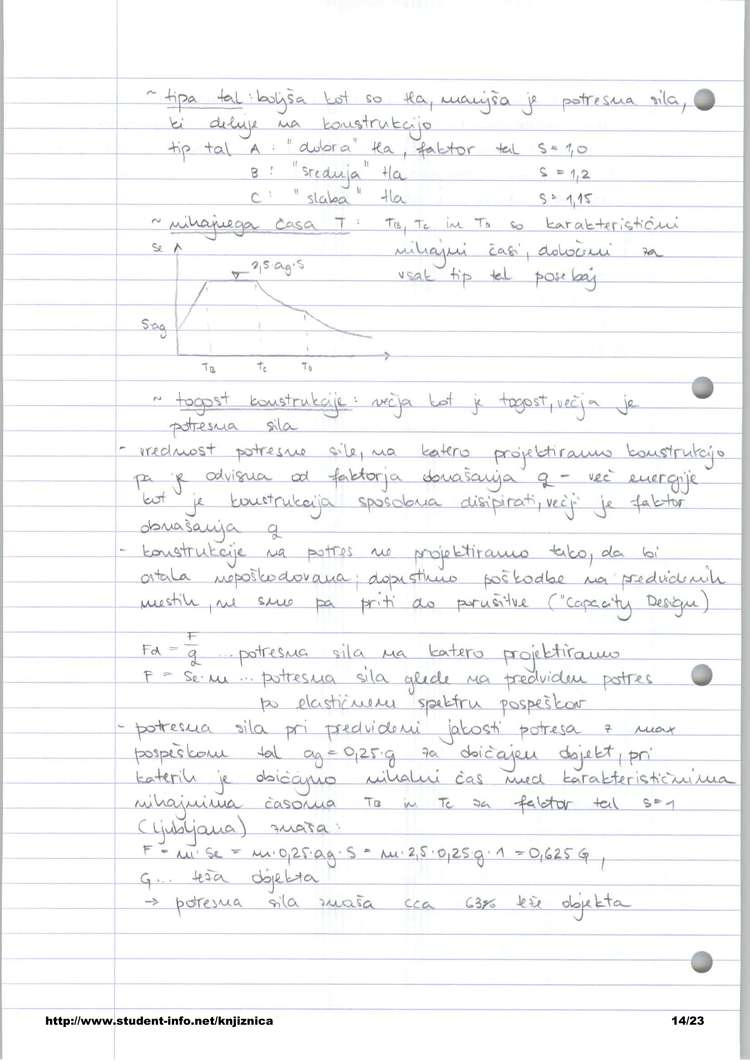 ~ tipa tal : boljša kot so tla, manjša je potresna sila,
ki deluje na konstrukcijo
tip tal A : "dobra" tla, faktor tal S = 1,0
B : "srednja" tla S = 1,2
C : "slaba" tla S = 1,15
~ nihajnega časa T : TB, TC in TD so karakteristični
nihajni časi, določeni za
vsak tip tal posebej
Se
2,5 ag·S
S·ag
TB TC TD
~ togost konstrukcije : večja kot je togost, večja je
potresna sila
- vrednost potresne sile, na katero projektiramo konstrukcijo
pa je odvisna od faktorja obnašanja q - več energije
kot je konstrukcija sposobna disipirati, večji je faktor
obnašanja q
- konstrukcije na potres ne projektiramo tako, da bi
ostala nepoškodovana; dopustimo poškodbe na predvidenih
mestih, ne sme pa priti do porušitve ("Capacity Design")
Fd = F/q ... potresna sila na katero projektiramo
F = Se·m ... potresna sila glede na predviden potres
po elastičnem spektru pospeškov
- potresna sila pri predvideni jakosti potresa z max
pospeškom tal ag = 0,25·g za običajen objekt, pri
katerih je običajno nihalni čas med karakterističnima
nihajnima časoma TB in TC za faktor tal S=1
(Ljubljana) znaša :
F = m·Se = m·0,25·ag·S = m·2,5·0,25g·1 = 0,625 G,
G... teža objekta
→ potresna sila znaša cca 63% teže objekta
http://www.student-info.net/knjiznica 14/23